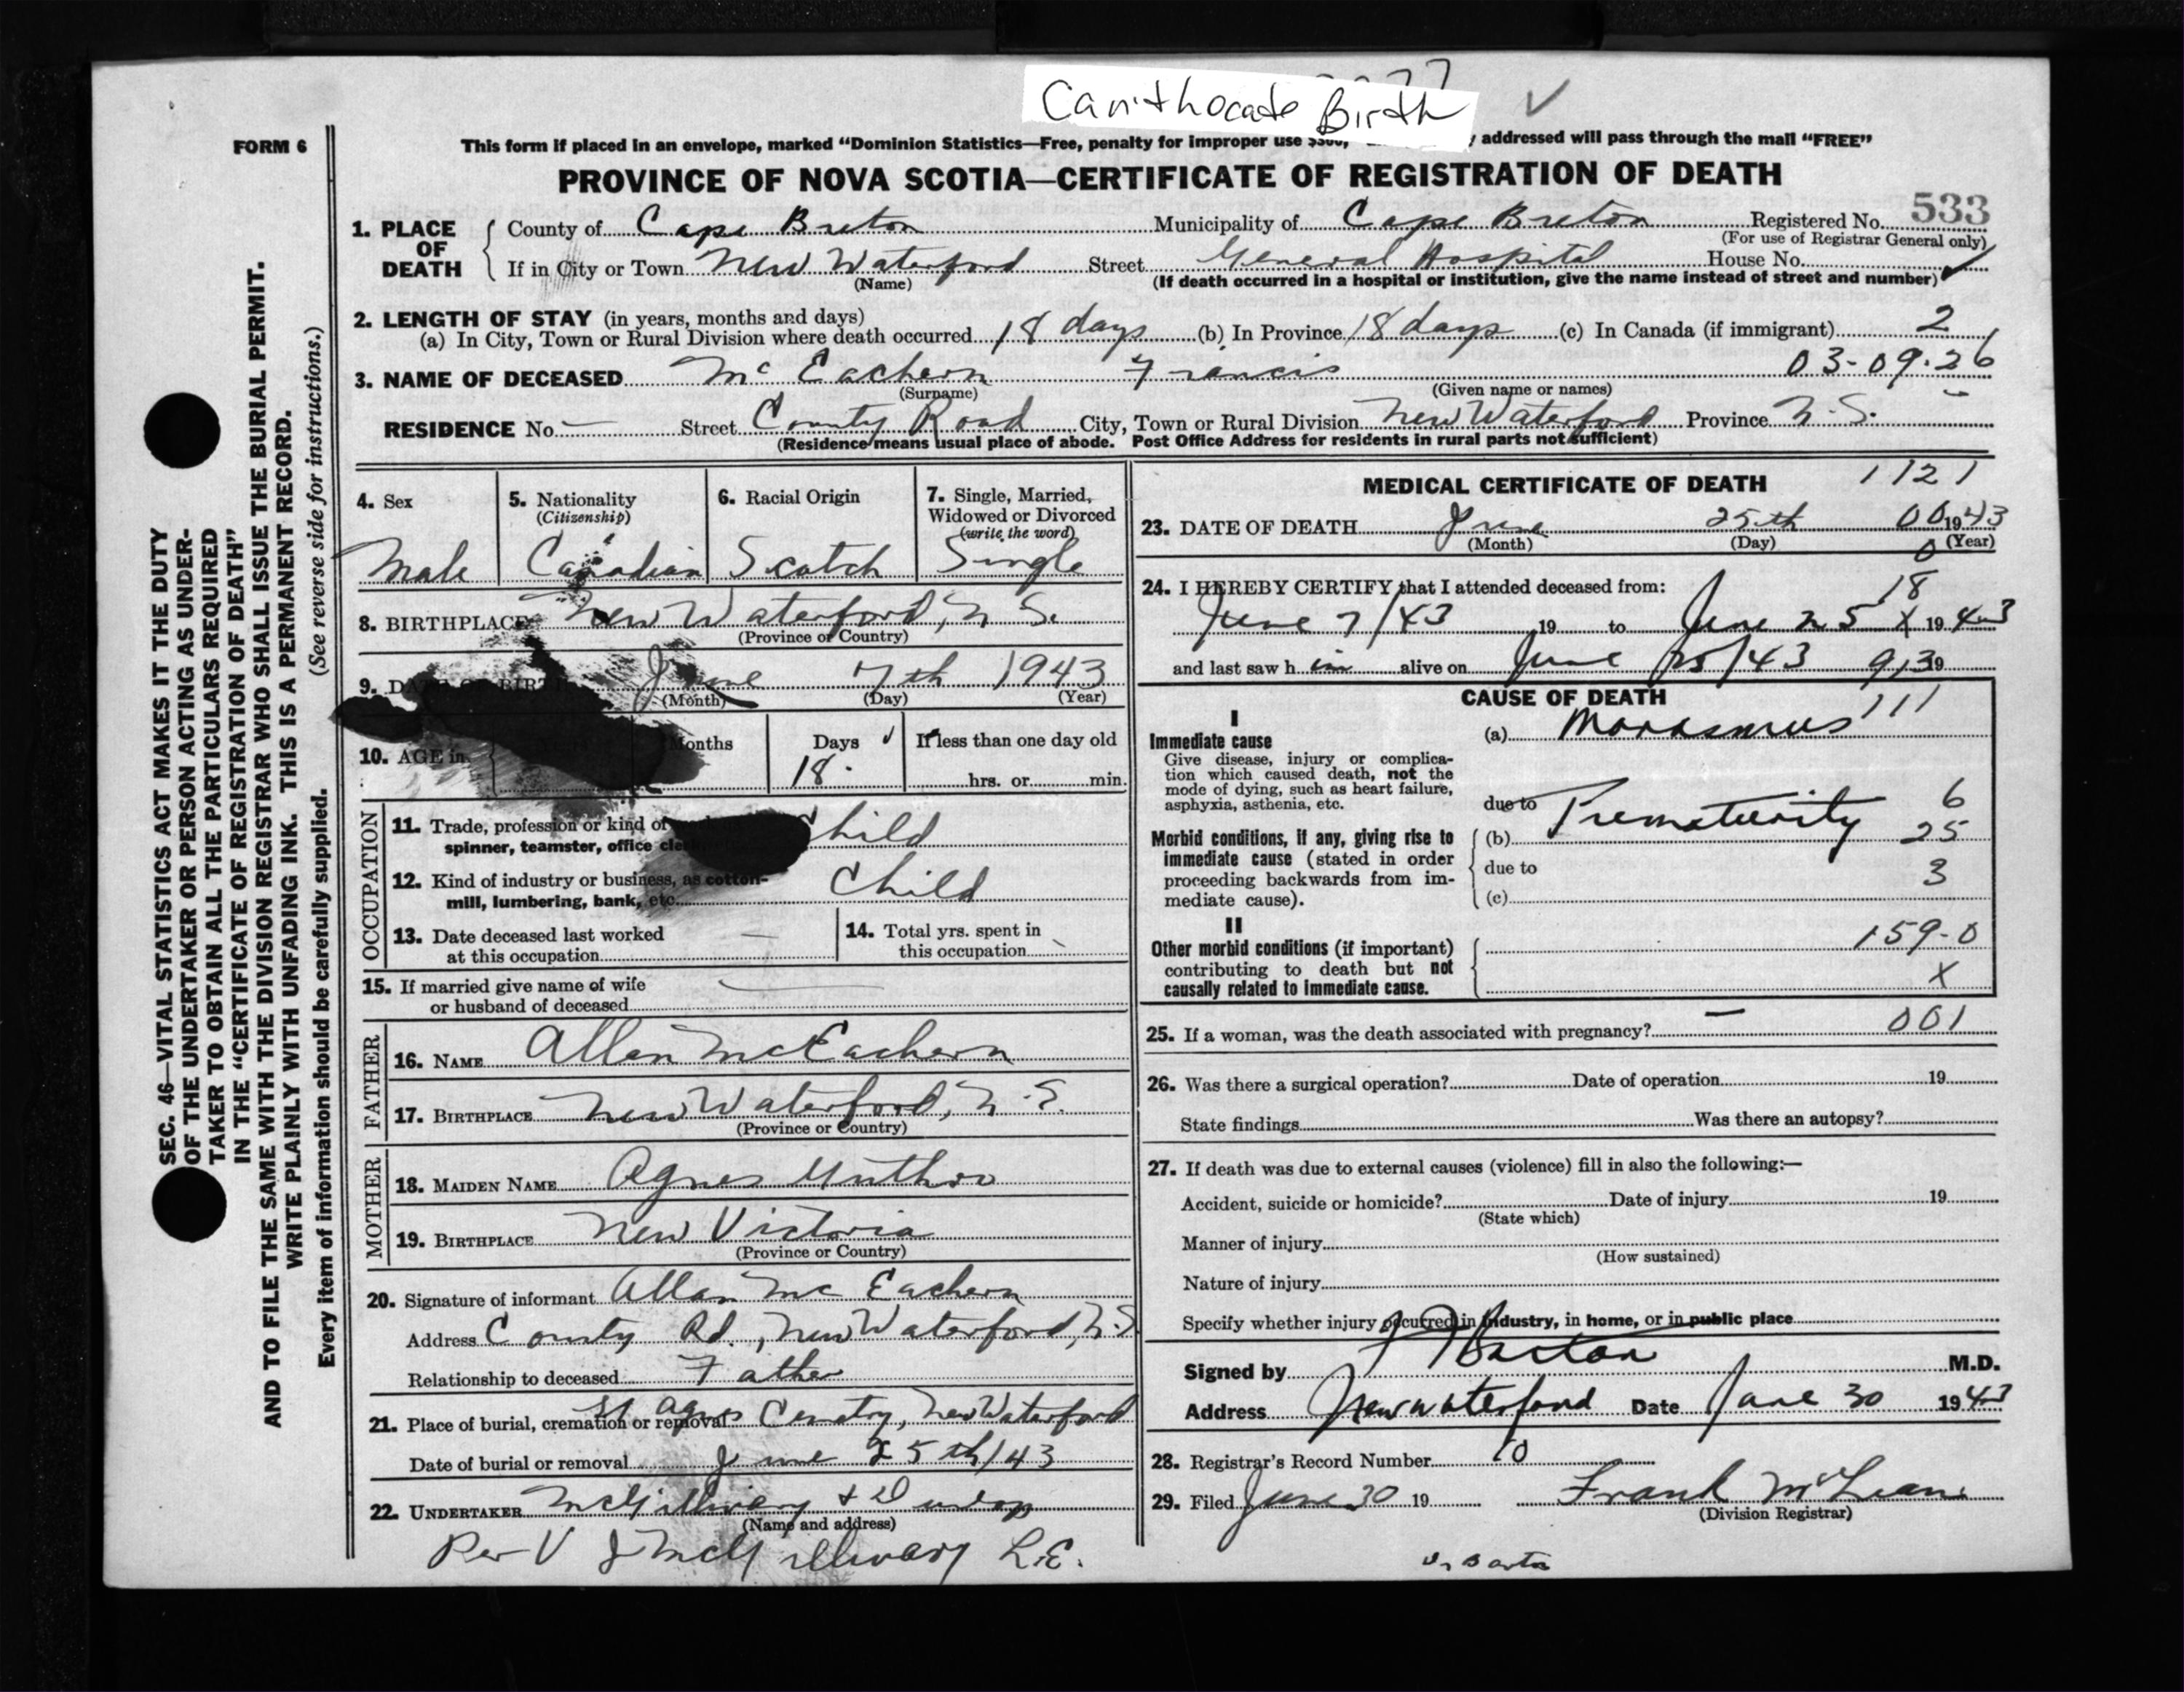 Can't locate Birth
FORM 6
This form if placed in an envelope, marked "Dominion Statistics—Free, penalty for improper use $300, addressed will pass through the mail "FREE"
PROVINCE OF NOVA SCOTIA—CERTIFICATE OF REGISTRATION OF DEATH
533
1. PLACE OF DEATH County of Cape Breton Municipality of Cape Breton Registered No.
(For use of Registrar General only)
If in City or Town New Waterford Street General Hospital House No.
(Name) (If death occurred in a hospital or institution, give the name instead of street and number)
2. LENGTH OF STAY (in years, months and days)
(a) In City, Town or Rural Division where death occurred 18 days (b) In Province 18 days (c) In Canada (if immigrant) 2
3. NAME OF DECEASED McEachern Francis 03-09-26
(Surname) (Given name or names)
RESIDENCE No. — Street County Road City, Town or Rural Division New Waterford Province N.S.
(Residence means usual place of abode. Post Office Address for residents in rural parts not sufficient)
4. Sex 5. Nationality (Citizenship) 6. Racial Origin 7. Single, Married, Widowed or Divorced (write the word)
Male Canadian Scotch Single
8. BIRTHPLACE New Waterford, N.S.
(Province or Country)
9. DATE OF BIRTH June 7th 1943
(Month) (Day) (Year)
10. AGE in Months Days If less than one day old
18 hrs. or min.
OCCUPATION
11. Trade, profession or kind of Child
spinner, teamster, office
12. Kind of industry or business, as cotton- Child
mill, lumbering, bank, etc.
13. Date deceased last worked at this occupation — 14. Total yrs. spent in this occupation
15. If married give name of wife
or husband of deceased
FATHER
16. NAME Allan McEachern
17. BIRTHPLACE New Waterford, N.S.
(Province or Country)
MOTHER
18. MAIDEN NAME Agnes Muthro
19. BIRTHPLACE New Victoria
(Province or Country)
20. Signature of informant Allan McEachern
Address County Rd., New Waterford, N.S
Relationship to deceased Father
21. Place of burial, cremation or removal St. Agnes Cemetry, New Waterford
Date of burial or removal June 25th/43
22. UNDERTAKER McGillivary & Dunlop
(Name and address)
Per V J McGillivary L.E.
MEDICAL CERTIFICATE OF DEATH 1121
23. DATE OF DEATH June 25th 00 1943
(Month) (Day) (Year)
0
24. I HEREBY CERTIFY that I attended deceased from:
18
June 7/43 19 to June 25 X 1943
and last saw h im alive on June 25/43 9,39
CAUSE OF DEATH
111
I
Immediate cause (a) Marasmus
Give disease, injury or complica-
tion which caused death, not the
mode of dying, such as heart failure,
asphyxia, asthenia, etc.
due to 6
Morbid conditions, if any, giving rise to (b) Prematurity 25
immediate cause (stated in order due to
proceeding backwards from im- 3
mediate cause). (c)
II
Other morbid conditions (if important) 159-0
contributing to death but not X
causally related to immediate cause.
25. If a woman, was the death associated with pregnancy? — 001
26. Was there a surgical operation? Date of operation 19
State findings Was there an autopsy?
27. If death was due to external causes (violence) fill in also the following:—
Accident, suicide or homicide? Date of injury 19
(State which)
Manner of injury
(How sustained)
Nature of injury
Specify whether injury occurred in industry, in home, or in public place
Signed by Barton M.D.
Address New Waterford Date June 30 1943
28. Registrar's Record Number 10
29. Filed June 30 19 Frank McLean
(Division Registrar)
SEC. 46—VITAL STATISTICS ACT MAKES IT THE DUTY
OF THE UNDERTAKER OR PERSON ACTING AS UNDER-
TAKER TO OBTAIN ALL THE PARTICULARS REQUIRED
IN THE "CERTIFICATE OF REGISTRATION OF DEATH"
AND TO FILE THE SAME WITH THE DIVISION REGISTRAR WHO SHALL ISSUE THE BURIAL PERMIT.
WRITE PLAINLY WITH UNFADING INK. THIS IS A PERMANENT RECORD.
Every item of information should be carefully supplied. (See reverse side for instructions.)